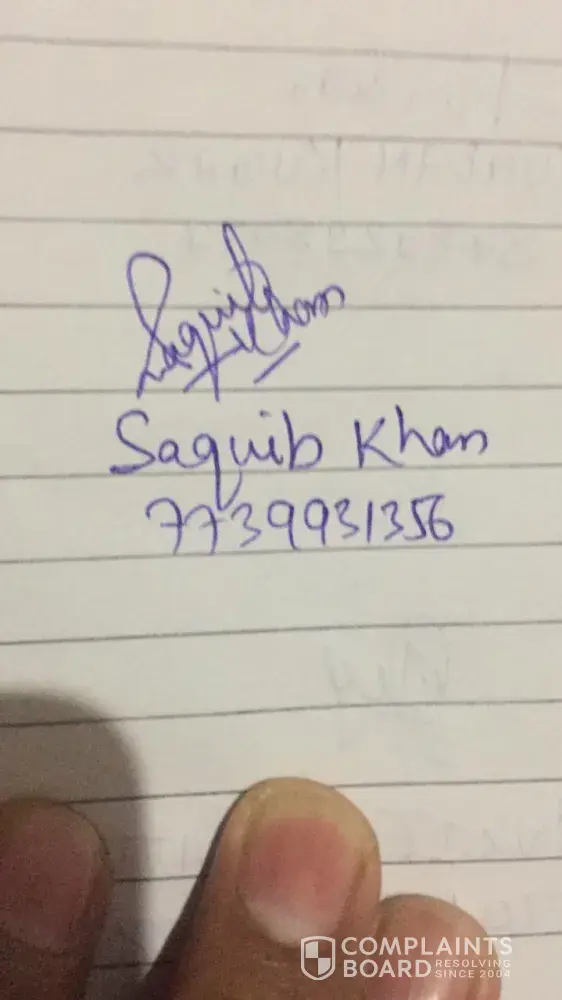 Saquib Khan
Saquib Khan
7739931356
COMPLAINTS
BOARD RESOLVING
SINCE 2004